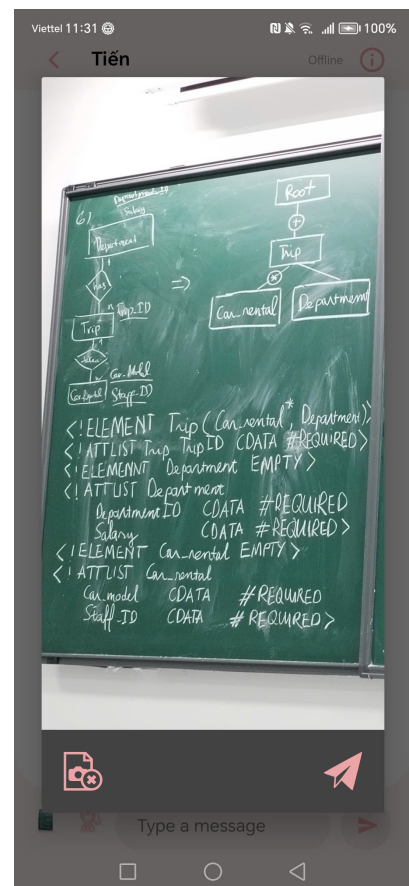 Viettel 11:31
100%
Tiến
Offline
6)
Department_ID
Salary
Department
1
has
n
Trip_ID
Trip
1
Car_Model
Staff_ID
=>
Root
+
Trip
*
Car_rental
Department
<!ELEMENT Trip (Car_rental*, Department)>
<!ATTLIST Trip TripID CDATA #REQUIRED>
<!ELEMENNT Department EMPTY>
<!ATTLIST Department
DepartmentID CDATA #REQUIRED
Salary CDATA #REQUIRED>
<!ELEMENT Car_rental EMPTY>
<!ATTLIST Car_rental
Car_model CDATA #REQUIRED
Staff_ID CDATA #REQUIRED>
Type a message